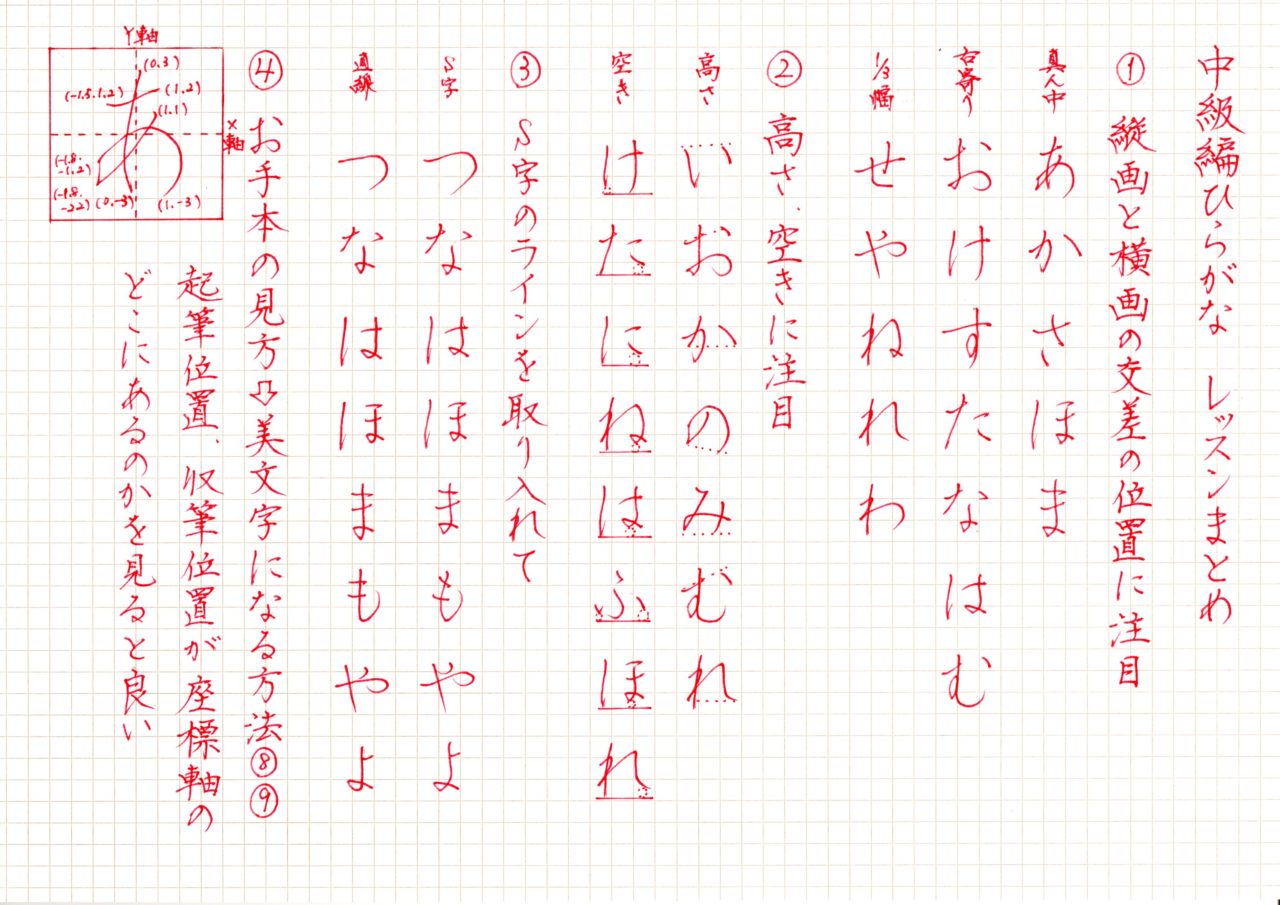 中級編ひらがな レッスンまとめ
① 縦画と横画の交差の位置に注目
真ん中 あかさほま
右寄り おけすたなはむ
1/3幅 せやねれわ
② 高さ、空きに注目
高さ いおかのみむれ
空き けたにねはふほれ
③ S字のラインを取り入れて
S字 つなはほまもやよ
直線 つなはほまもやよ
④ お手本の見方⇨美文字になる方法⑧⑨
起筆位置、収筆位置が座標軸の
どこにあるのかを見ると良い
Y軸
X軸
(0.3)
(-1.5.1.2)
(1.2)
(1.1)
(-1.8.-1.2)
(-1.8.-2.2)
(0.-3)
(1.-3)
あ